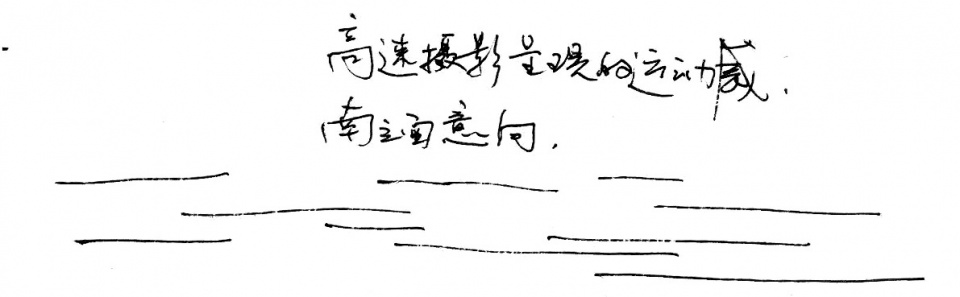 高速摄影呈现的运动感.
南立面意向.